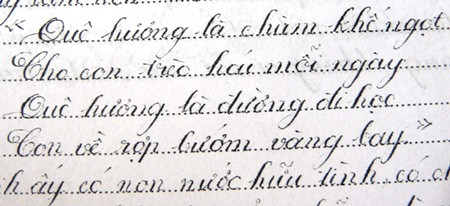 “ Quê hương là chùm khế ngọt
Cho con trèo hái mỗi ngày
Quê hương là đường đi học
Con về rợp bướm vàng bay ”
ấy có non nước hữu tình có